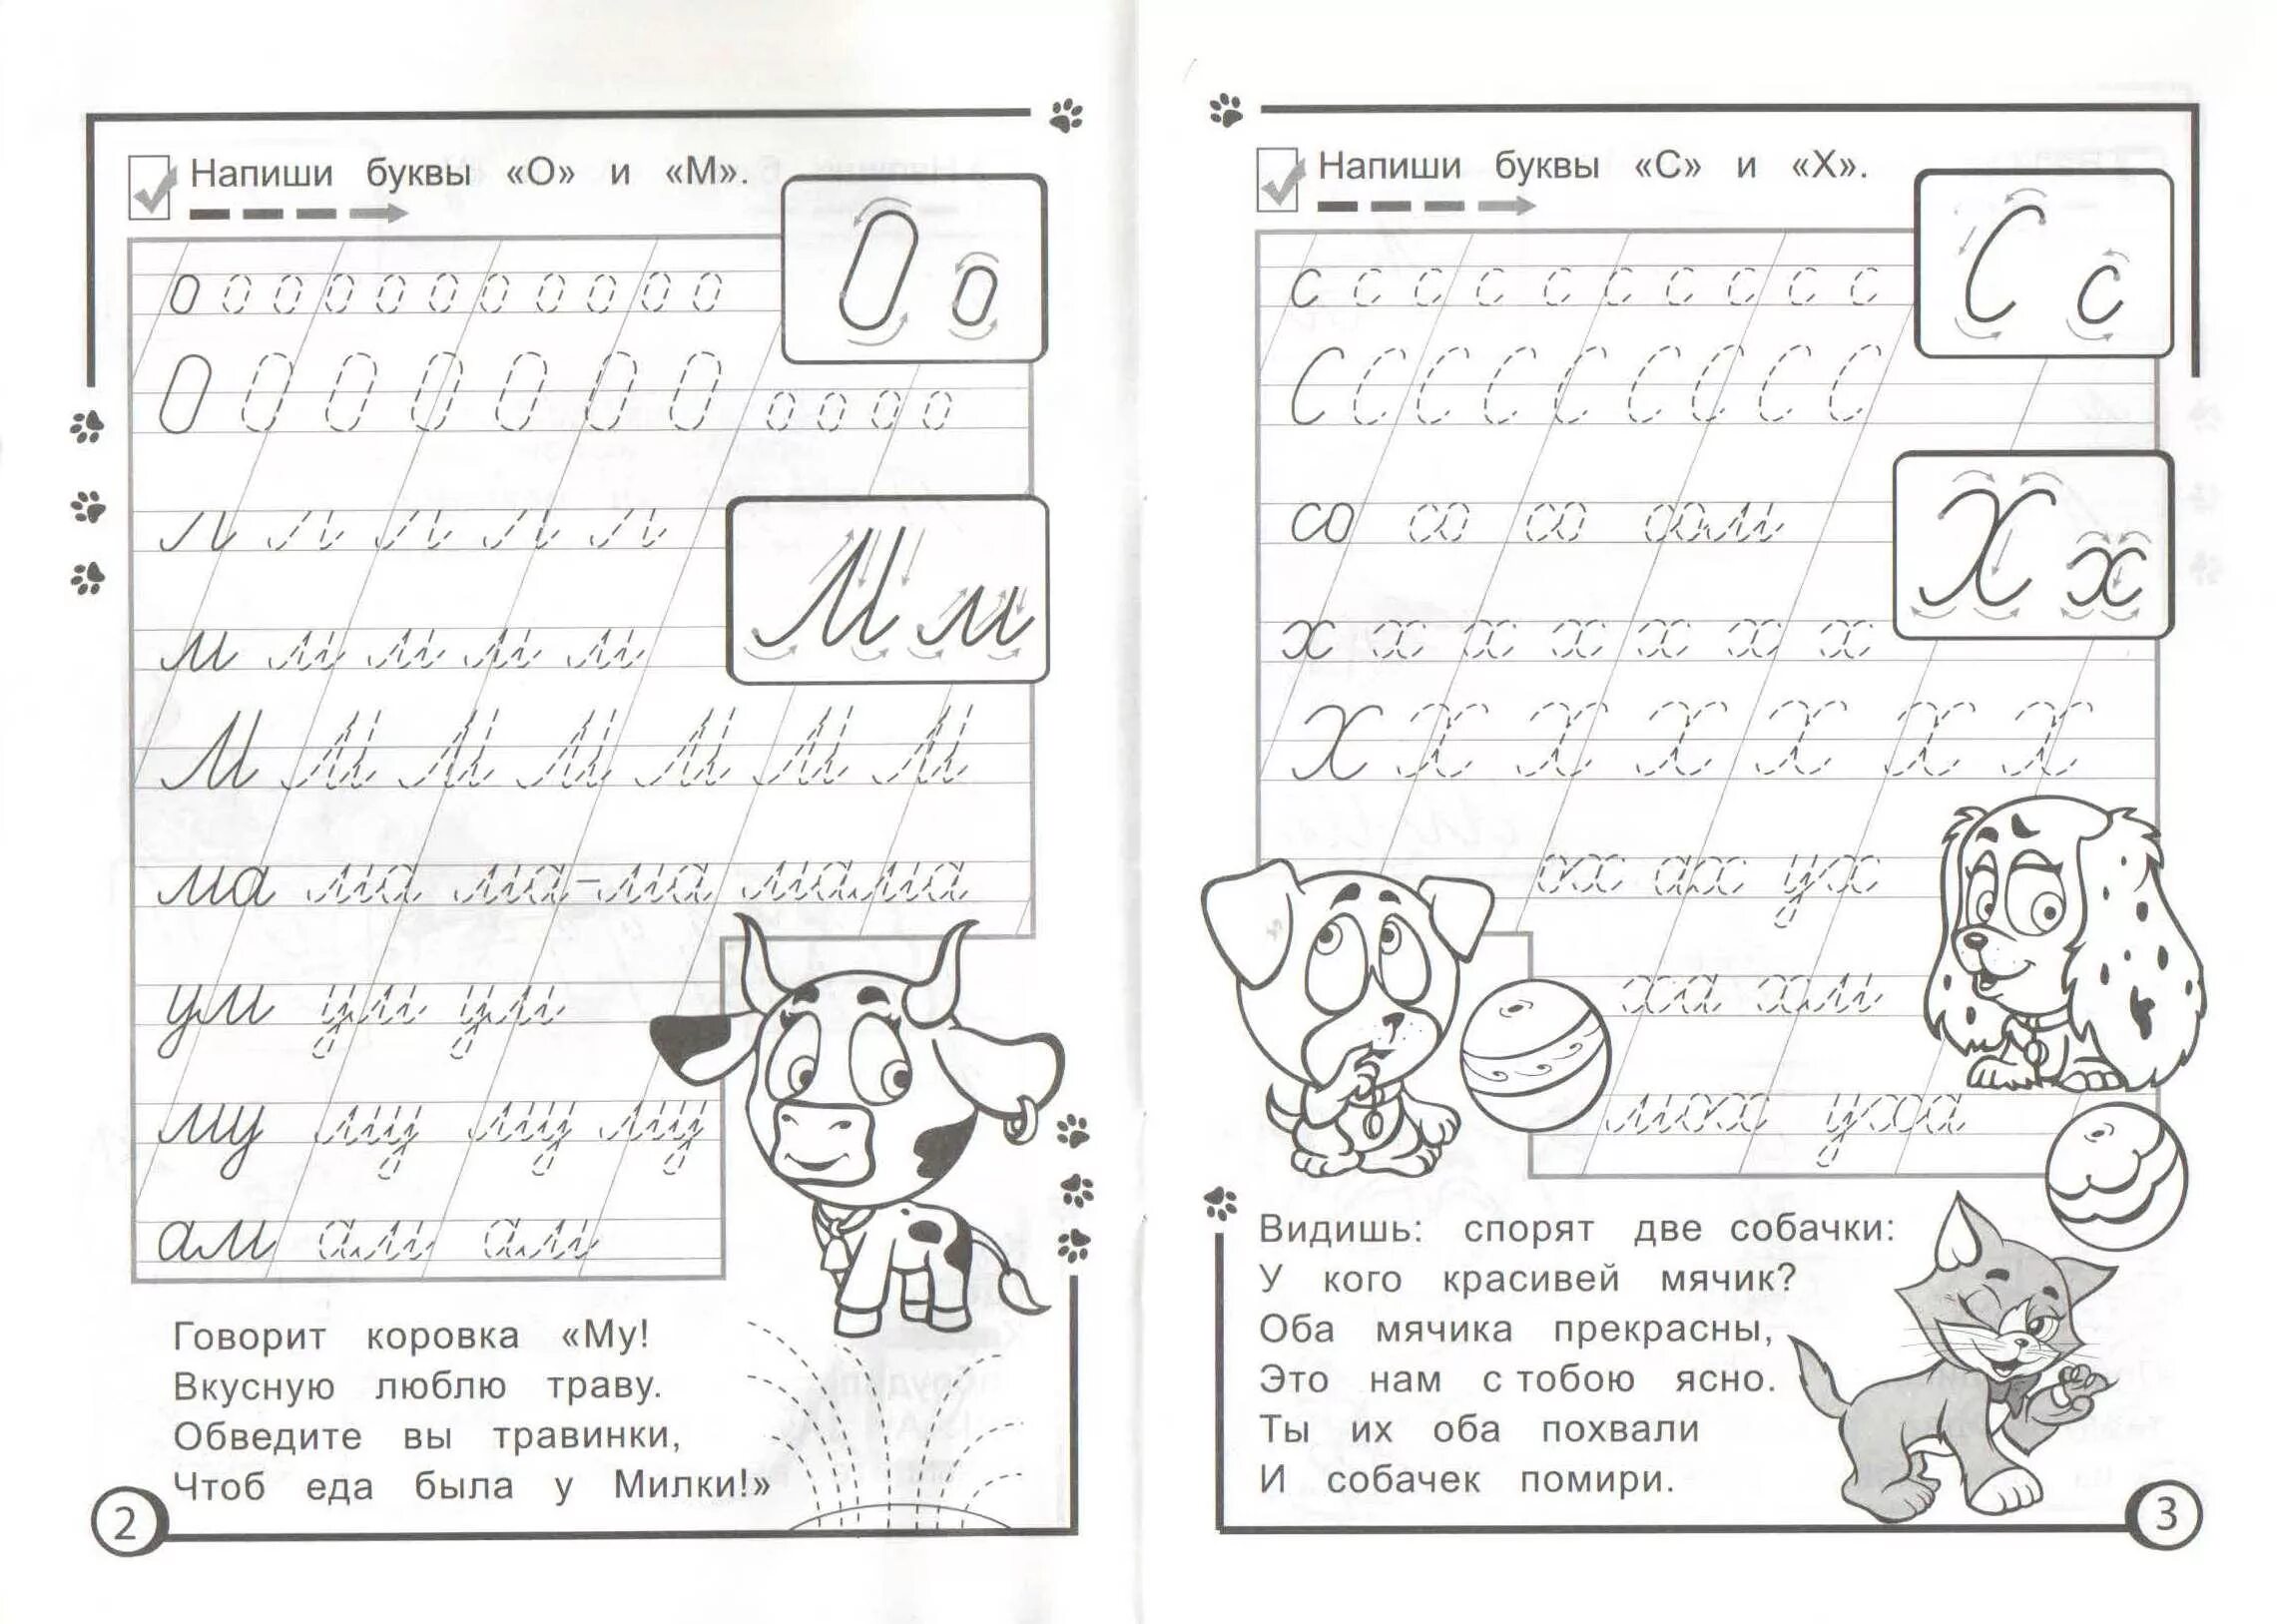 Напиши буквы «О» и «М».
О о
о о о о о о о о о о о
О О О О О О О о о о о
М м
л л л л л
м м м м м
М М М М М М М
ма ма ма-ма мама
ум ум ум
му му му му
ам ам ам
Говорит коровка «Му!
Вкусную люблю траву.
Обведите вы травинки,
Чтоб еда была у Милки!»
2
Напиши буквы «С» и «Х».
С с
с с с с с с с с с с
С С С С С С С С С
Х х
со со со сом
х х х х х х х
Х Х Х Х Х Х Х
ох ах ух
ха хм
мох уха
Видишь: спорят две собачки:
У кого красивей мячик?
Оба мячика прекрасны,
Это нам с тобою ясно.
Ты их оба похвали
И собачек помири.
3